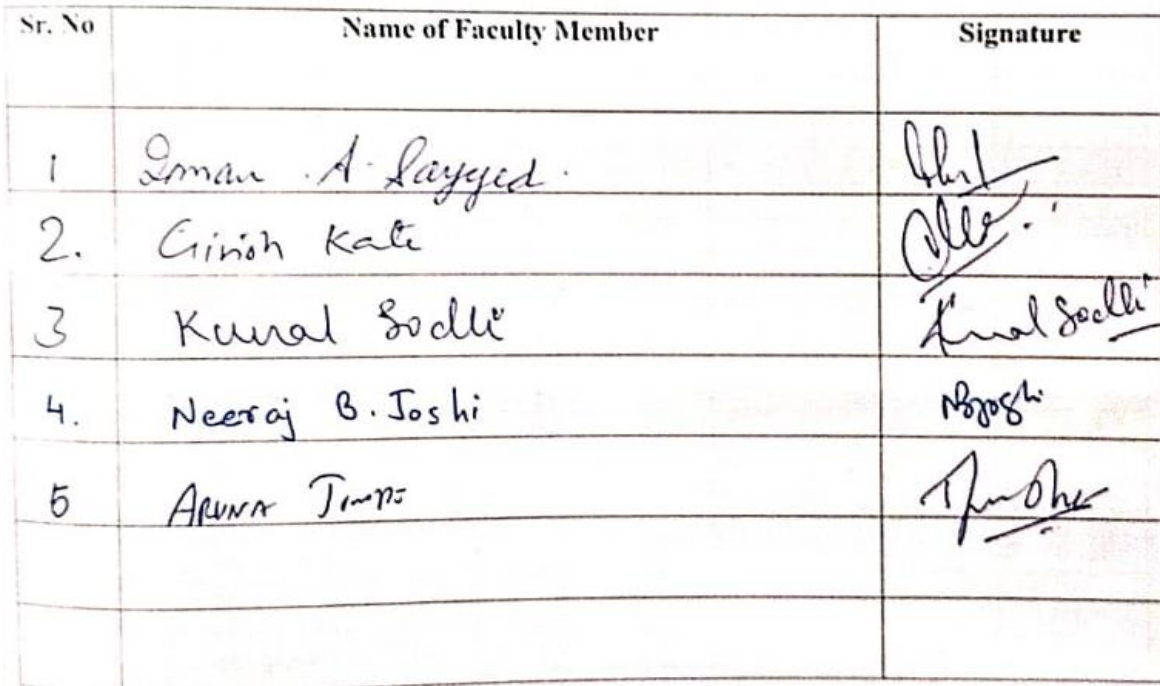 Sr. No Name of Faculty Member Signature
1 Iman A. Sayyed.
2. Girish Kate
3 Kunal Sodhi Kunal Sodhi
4. Neeraj B. Joshi NBJoshi
5 ARUNA